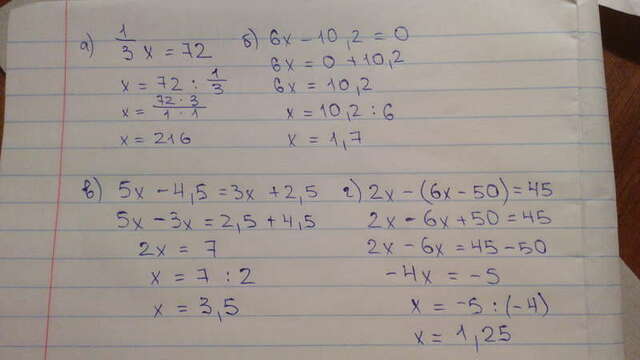 а) 1/3 x = 72
x = 72 : 1/3
x = 72 · 3 / 1 · 1
x = 216
б) 6x - 10,2 = 0
6x = 0 + 10,2
6x = 10,2
x = 10,2 : 6
x = 1,7
в) 5x - 4,5 = 3x + 2,5
5x - 3x = 2,5 + 4,5
2x = 7
x = 7 : 2
x = 3,5
г) 2x - (6x - 50) = 45
2x - 6x + 50 = 45
2x - 6x = 45 - 50
-4x = -5
x = -5 : (-4)
x = 1,25